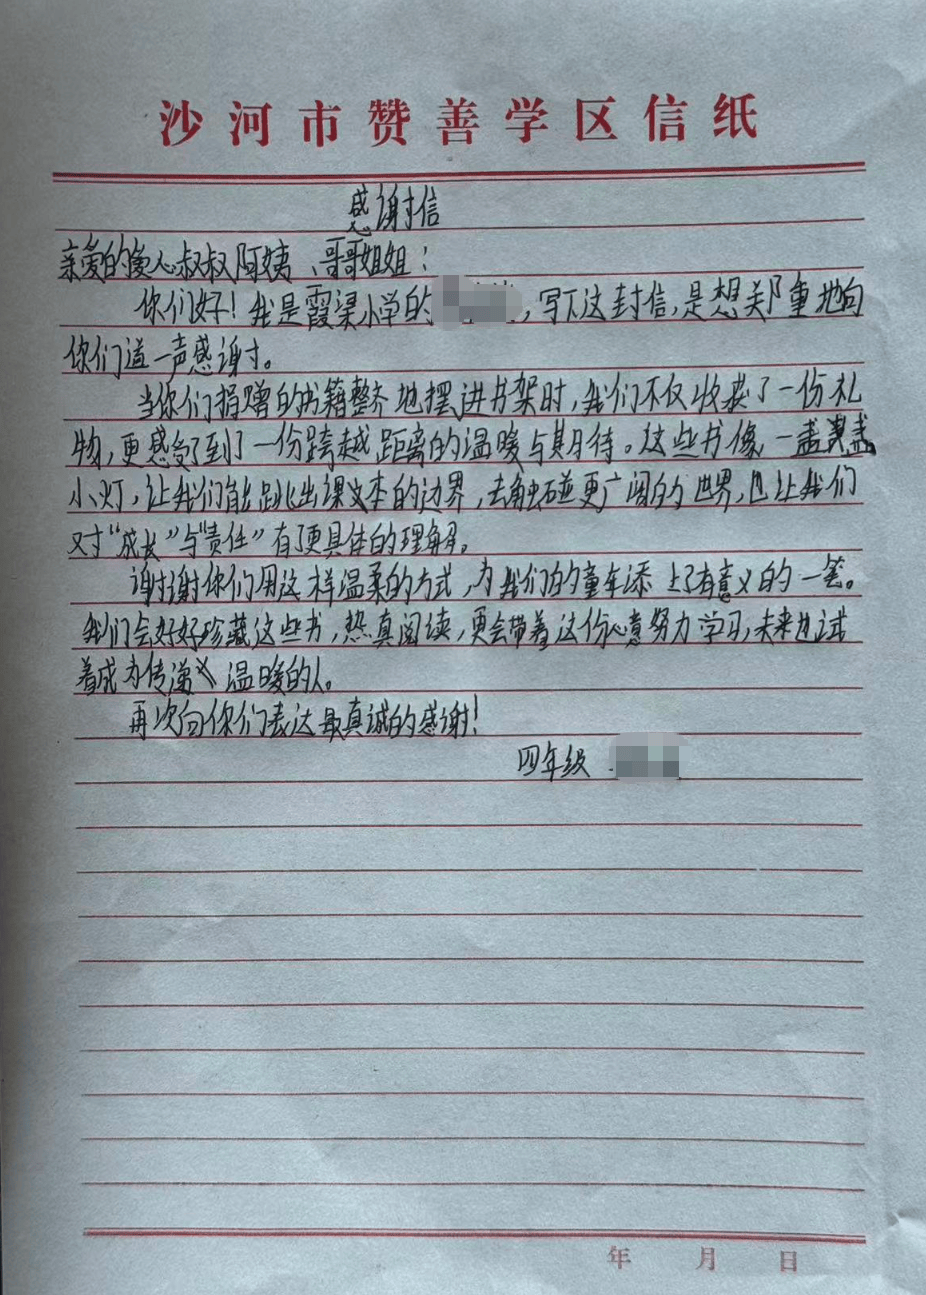 沙河市赞善学区信纸
感谢信
亲爱的爱心叔叔阿姨、哥哥姐姐：
你们好！我是霞梁小学的，写下这封信，是想郑重地向
你们道一声感谢。
当你们捐赠的书籍整齐地摆进书架时，我们不仅收获了一份礼
物，更感受到了一份跨越距离的温暖与期待。这些书像一盏盏
小灯，让我们能跳出课文本的边界，去触碰更广阔的世界，也让我们
对“成长”与“责任”有了更具体的理解。
谢谢你们用这样温柔的方式，为我们的童年添上了有意义的一笔。
我们会好好珍藏这些书，热真阅读，更会带着这份心意努力学习，未来也试
着成为传递温暖的人。
再次向你们表达最真诚的感谢！
四年级
年 月 日